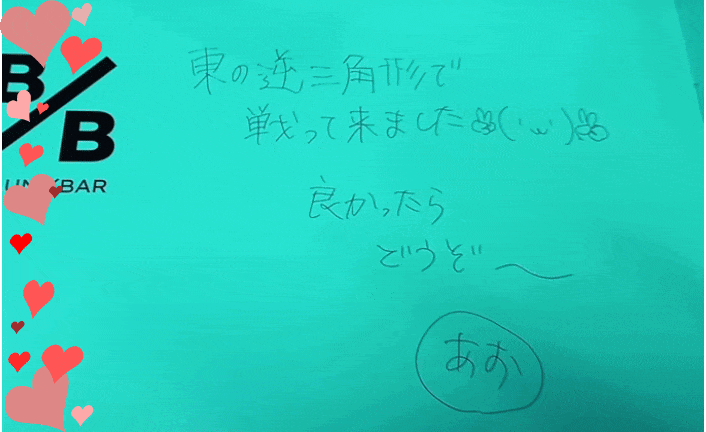 B/B
東の逆三角形で
戦って来ました(･ω･)
良かったら
どうぞ〜
あお